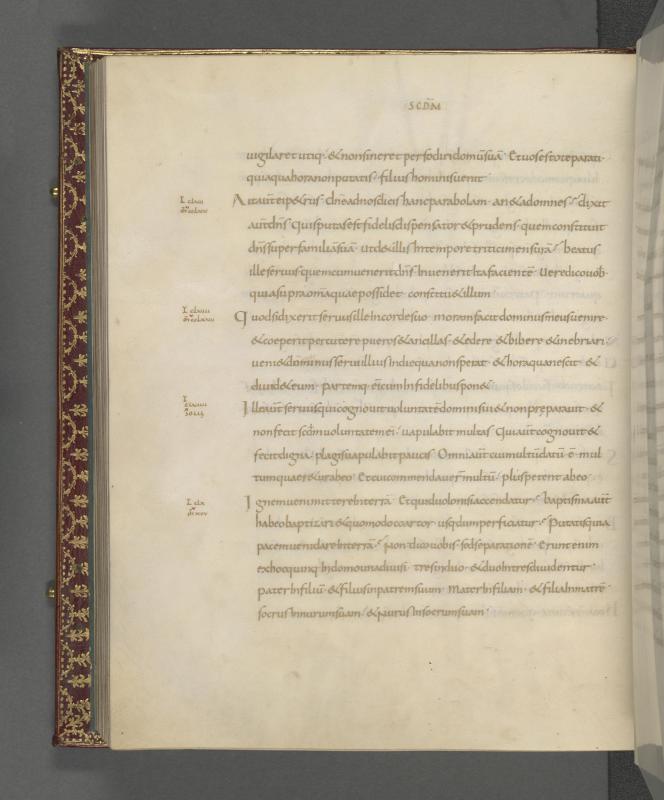 SCDM̄
uigilaret utiq· & non sineret perfodiri domū suā Et uos estote parati·
quia qua hora non putatis · filius hominis uenit
Ait aut̄ ei p&rus · dn̄e ad nos dicis hanc parabolam · an & ad omnes · dixit
aut̄ dn̄s · Quis putas est fidelis dispensator & prudens · quem constituit
dn̄s super familiā suā · ut d& illis In tempore tritici mensurā · beatus
ille seruus quem cum uenerit dn̄s Inuenerit Ita facientē Uere dico uob·
quia supra om̄a quae possidet · constitu& illum
Quod si dixerit seruus ille In corde suo · moram facit dominus meus uenire·
& coeperit percutere pueros & ancillas · & edere & bibere & inebriari·
ueni& dominus serui illius In die qua non sperat · & hora qua nescit · &
diuid& eum · partemq· ei cum Infidelibus pon&·
Ille aut̄ seruus qui cognouit uoluntatē domini sui & non preparauit · &
non fecit scdm̄ uoluntatem ei· uapulabit multas · Qui aut̄ cognouit &
fecit digna · plagis uapulabit paucis · Omni aut̄ cui multū datū ē · mul
tum quaer&ur ab eo · Et cui commendauer̄ multū · plus petent ab eo·
Ignem ueni mittere In terrā · Et quid uolo nisi accendatur · baptisma aut̄
habeo baptizari & quomodo coartor usq dum perficiatur · Putatis quia
pacem ueni dare In terrā · Non dico uobis · sed separationē · Erunt enim
ex hoc quinq· In domo una diuisi · tres In duo · & duo In tres diuidentur·
pater In filiū · & filius in patrem suum · Mater In filiam · & filia In matrē·
socrus In nurum suam · & nurus In socrum suam·